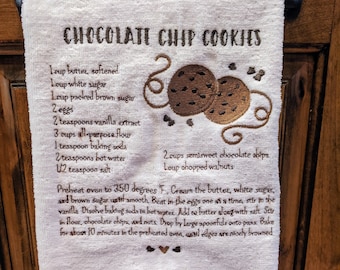 CHOCOLATE CHIP COOKIES
1 cup butter, softened
1 cup white sugar
1 cup packed brown sugar
2 eggs
2 teaspoons vanilla extract
3 cups all-purpose flour
1 teaspoon baking soda
2 teaspoons hot water
1/2 teaspoon salt
2 cups semisweet chocolate chips
1 cup chopped walnuts
Preheat oven to 350 degrees °F. Cream the butter, white sugar,
and brown sugar until smooth. Beat in the eggs one at a time, stir in the
vanilla. Disolve baking soda in hot water. Add to butter along with salt. Stir
in flour, chocolate chips, and nuts. Drop by large spoonfuls onto pans. Bake
for about 10 minutes in the preheated oven, until edges are nicely browned